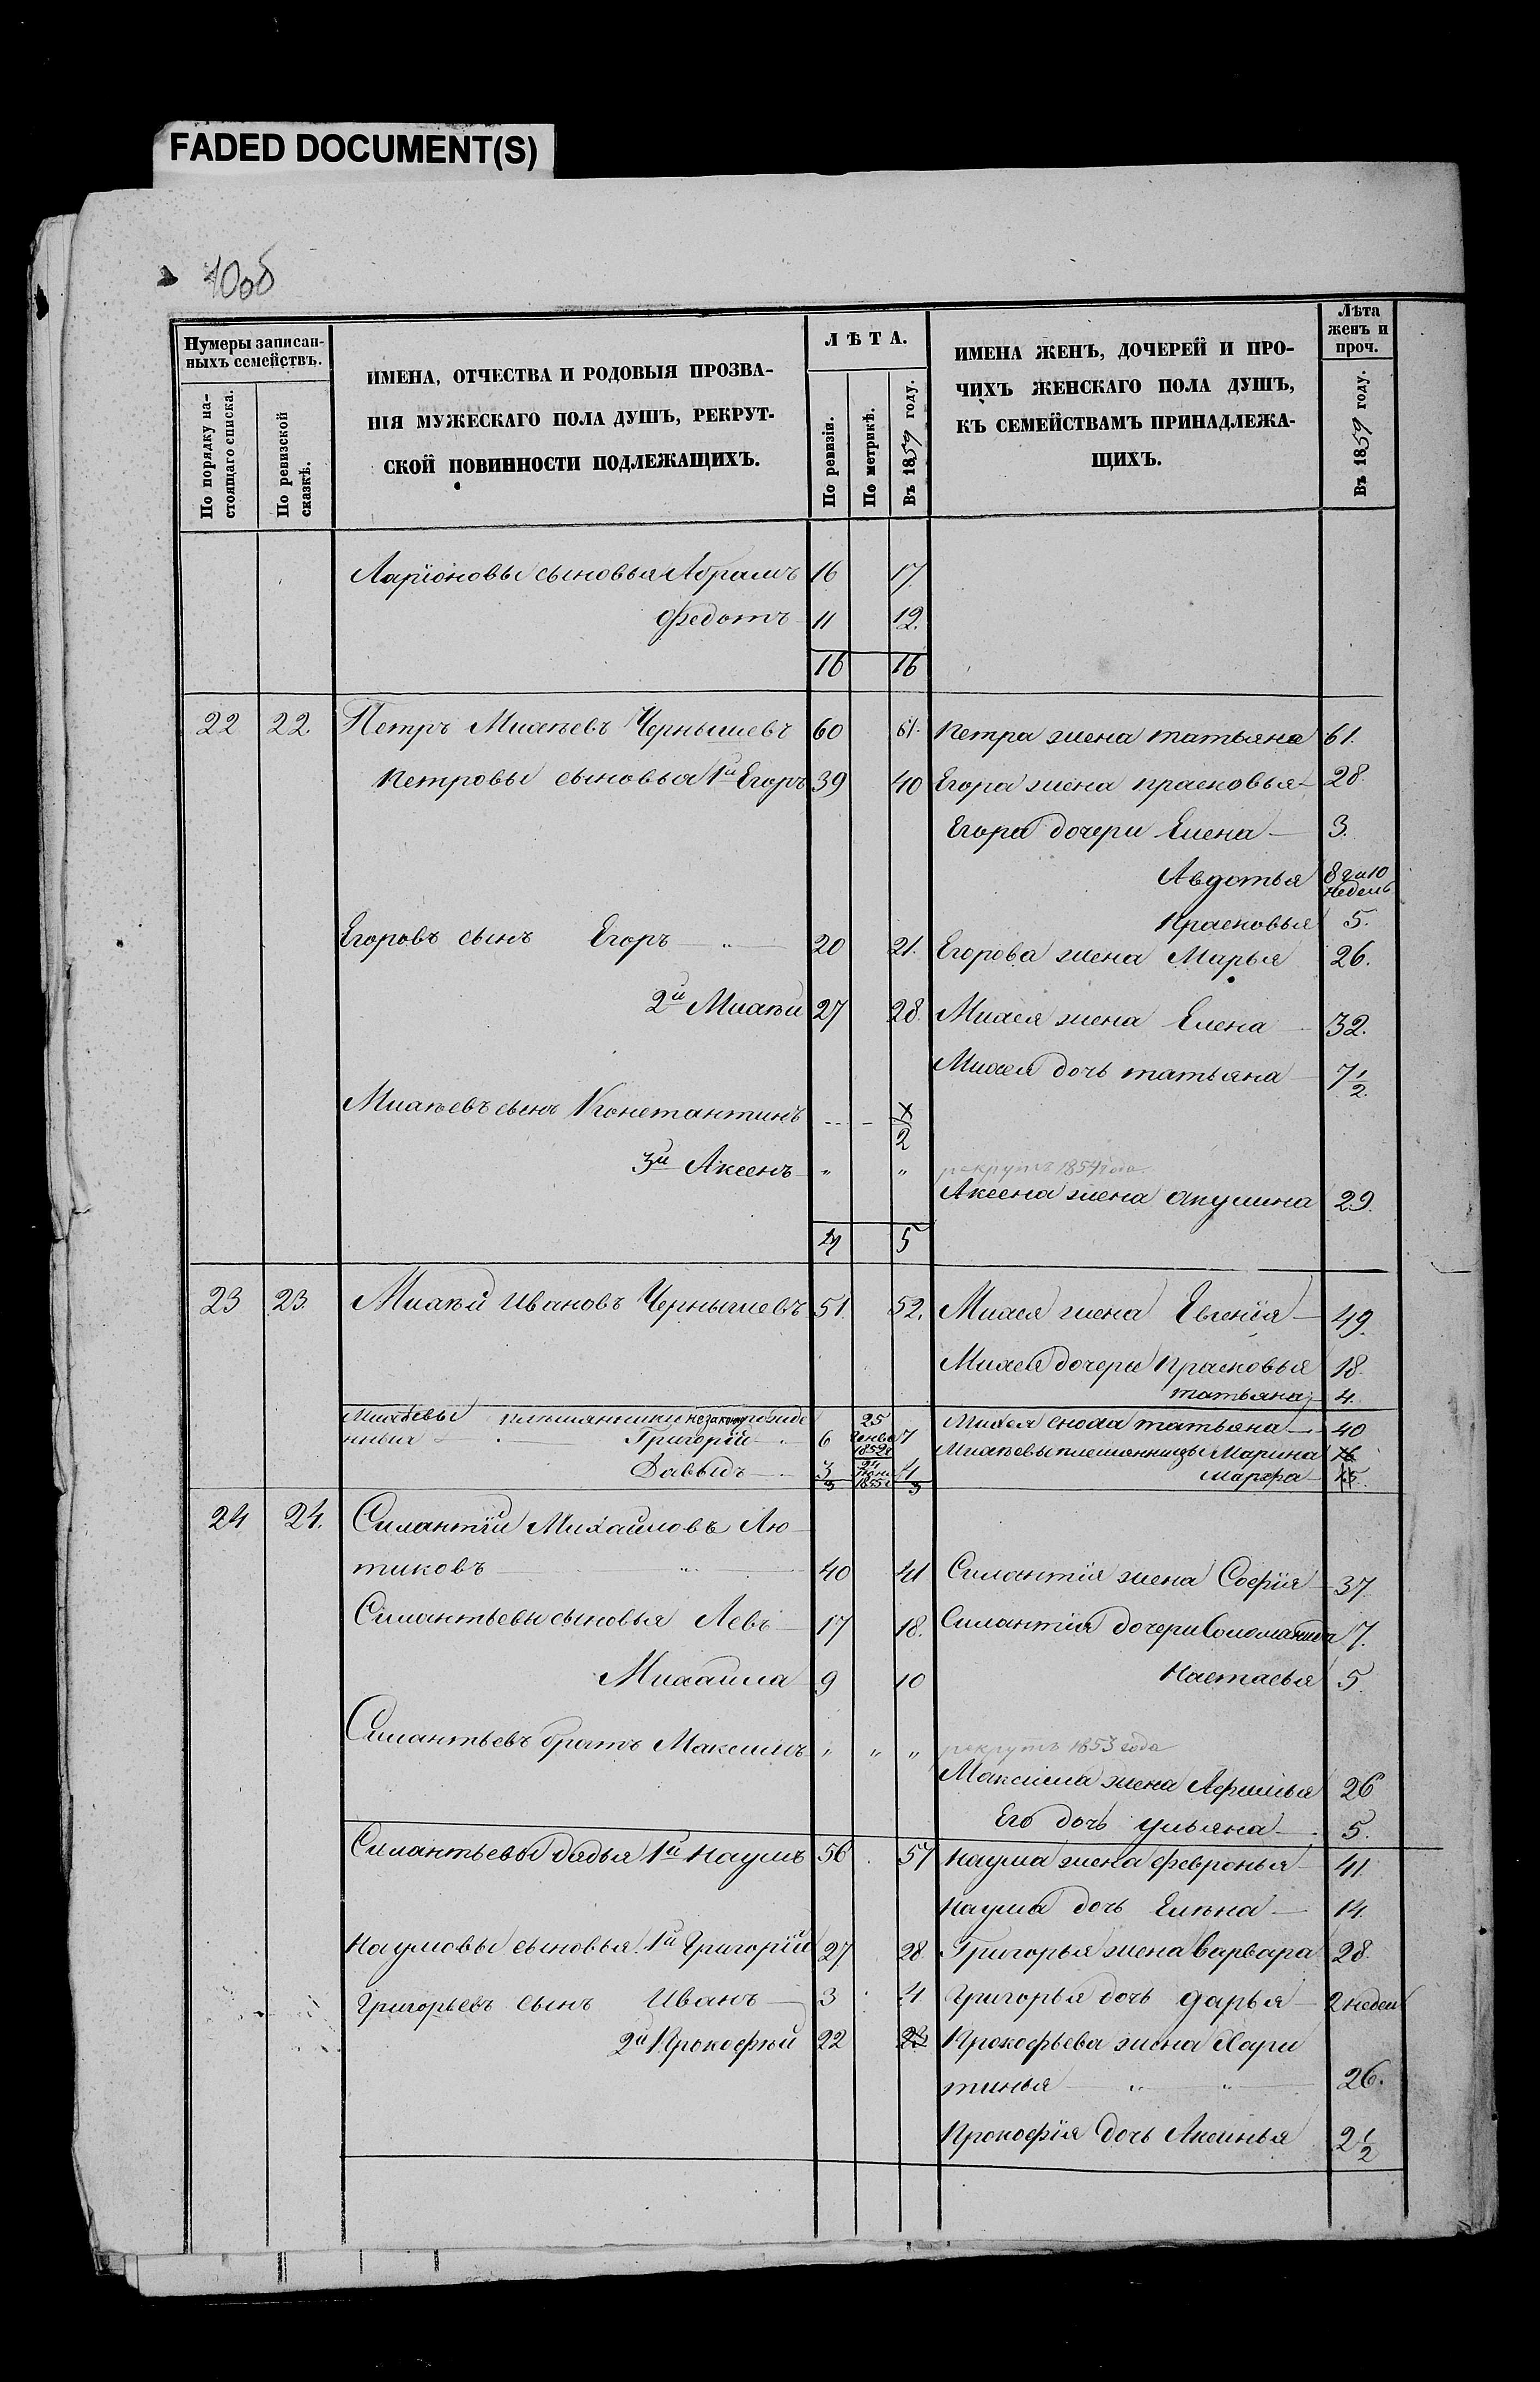 FADED DOCUMENT(S)
40об
Нумеры записан-
ныхъ семействъ.
По порядку на-
стоящаго списка.
По ревизской
сказкѣ.
ИМЕНА, ОТЧЕСТВА И РОДОВЫЯ ПРОЗВА-
НІЯ МУЖЕСКАГО ПОЛА ДУШЪ, РЕКРУТ-
СКОЙ ПОВИННОСТИ ПОДЛЕЖАЩИХЪ.
ЛѢТА.
По ревизіи.
По метрикѣ.
Въ 1859 году.
ИМЕНА ЖЕНЪ, ДОЧЕРЕЙ И ПРО-
ЧИХЪ ЖЕНСКАГО ПОЛА ДУШЪ,
КЪ СЕМЕЙСТВАМЪ ПРИНАДЛЕЖА-
ЩИХЪ.
Лѣта
женъ и
проч.
Въ 1859 году.
Ларіоновы сыновья Абрамъ 16 17
Федотъ 11 12.
16 16
22 22. Петръ Михѣевъ Чернышевъ 60 61. Петра жена татьяна 61.
Петровы сыновья 1й Егоръ 39 40 Егора жена прасковья 28.
Егора дочери Елена 3.
Авдотья 8 и 10
недель
Прасковья 5.
Егоровъ сынъ Егоръ 20 21. Егорова жена Марья 26.
2й Михѣй 27 28. Михея жена Елена 32.
Михея дочь татьяна 7 1/2.
Михѣевъ сынъ Константинъ 2
3й Аксенъ " " рекрутъ 1854 года
Аксена жена акулина 29.
4 5
23 23. Михѣй Ивановъ Чернышевъ 51. 52. Михея жена Евгенія 49.
Михея дочери Прасковья 18.
татьяна 4.
Михѣевы племянники незаконорожде
нныя Григорій 6 25 1852 7 Михея сноха татьяна 40
Михѣевы племянницы Марина
Давыдъ 3 24 1855 4 марфа 15.
3 3
24 24. Силантій Михайловъ Лю
тиковъ 40 41 Силантія жена Софія 37
Силантьевы сыновья Левъ 17 18. Силантія дочери Соломанида 7.
Михайла 9 10 Настасья 5.
Силантьевъ братъ Максимъ " " " рекрутъ 1853 года
Максима жена Афимья 26
Его дочь ульяна 5.
Силантьевы дядья 1й Наумъ 56 57 Наума жена февронья 41.
Наума дочь Елѣна 14.
Наумовы сыновья 1й Григорій 27 28 Григорья жена Варвара 28.
Григорьевъ сынъ Иванъ 3 4 Григорья дочь дарья 2 недел
2й Прокофѣй 22 23 Прокофьева жена Хари
тинья 26.
Прокофія дочь Аксинья 2 1/2